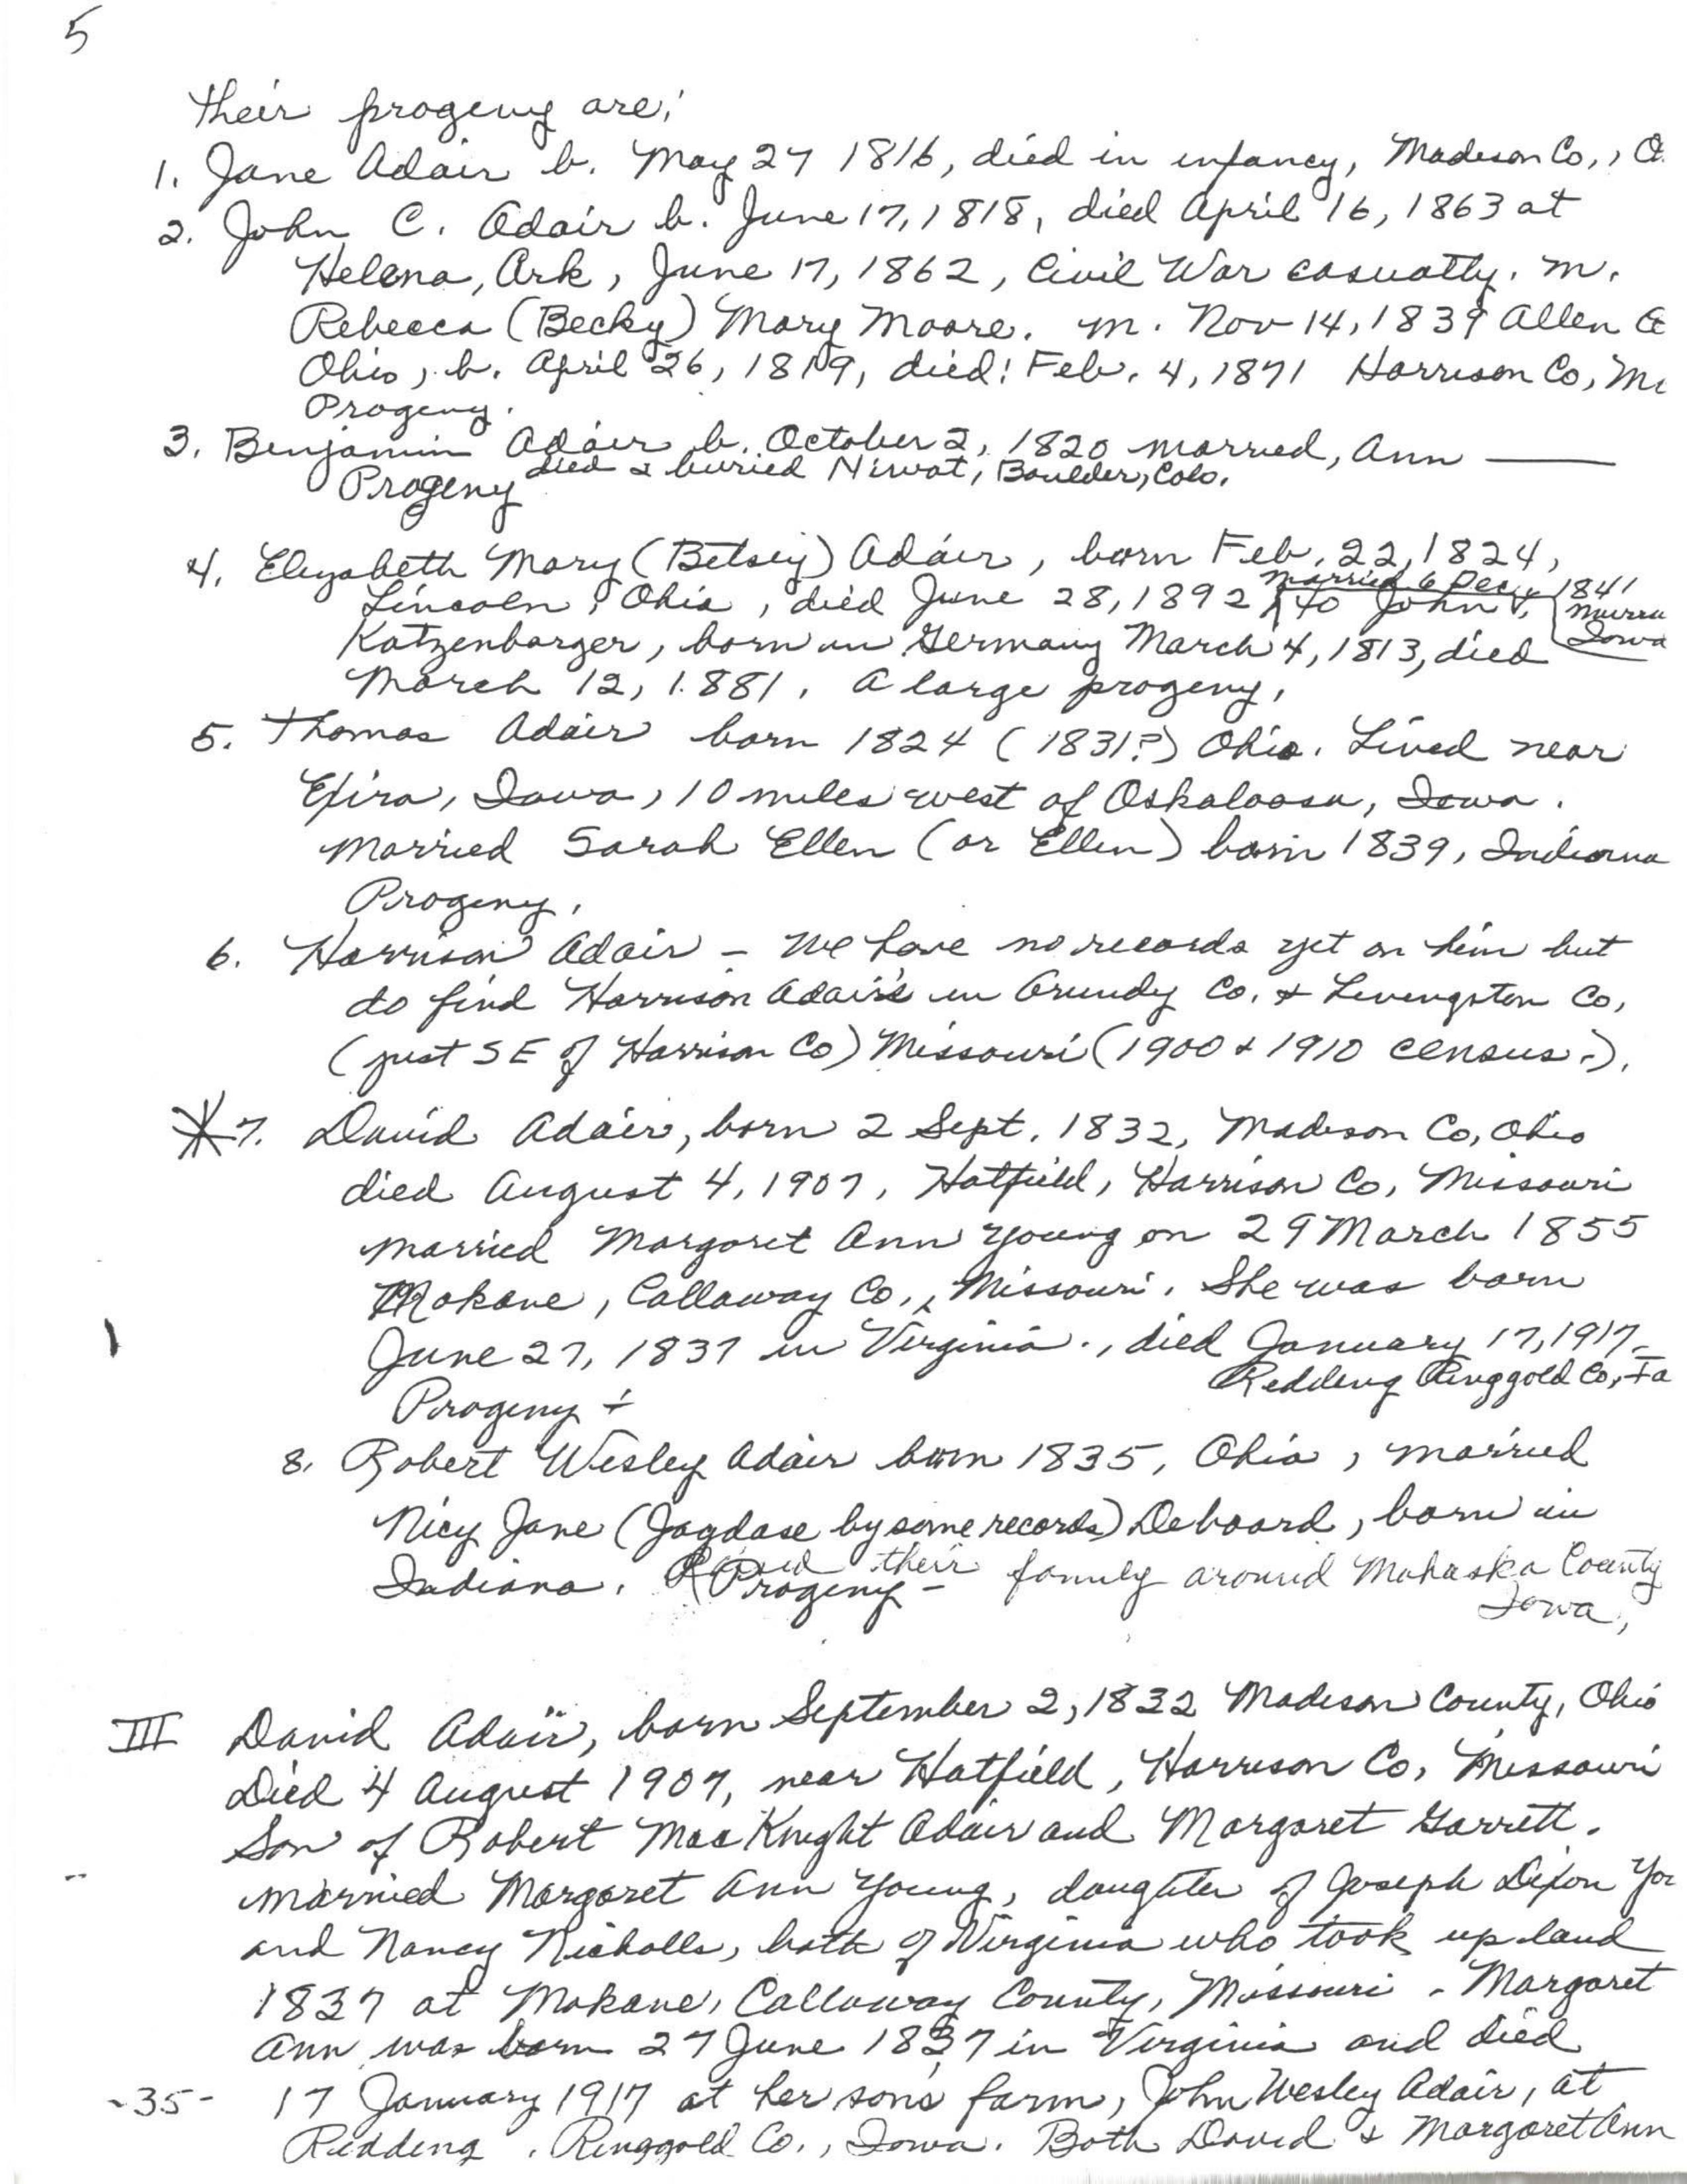 5
their progeny are;
1. Jane Adair b. May 27 1816, died in infancy, Madison Co., O.
2. John C. Adair b. June 17, 1818, died April 16, 1863 at
Helena, Ark, June 17, 1862, Civil War casualty. m.
Rebecca (Becky) Mary Moore. m. Nov 14, 1839 Allen Co
Ohio, b. April 26, 1819, died: Feb. 4, 1871 Harrison Co, Mo
Progeny.
3. Benjamin Adair b. October 2, 1820 married, Ann ——
died & buried Niwot, Boulder, Colo.
Progeny
4. Elizabeth Mary (Betsey) Adair, born Feb. 22, 1824,
married 6 Dec. 1841
Lincoln, Ohio, died June 28, 1892 to John
Iowa
Katzenbarger, born in Germany March 4, 1813, died
March 12, 1881. A large progeny.
5. Thomas Adair born 1824 (1831?) Ohio. Lived near
Efira, Iowa, 10 miles west of Oskaloosa, Iowa.
Married Sarah Ellen (or Ellen) born 1839, Indiana
Progeny.
6. Harrison Adair - We have no records yet on him but
do find Harrison Adair's in Grundy Co. & Livingston Co,
(just SE of Harrison Co) Missouri (1900 & 1910 census.).
*7. David Adair, born 2 Sept. 1832, Madison Co, Ohio
died August 4, 1907, Hatfield, Harrison Co, Missouri
married Margaret Ann Young on 29 March 1855
Mokane, Callaway Co., Missouri. She was born
June 27, 1837 in Virginia., died January 17, 1917-
Redding Ringgold Co, Ia
Progeny +
8. Robert Wesley Adair born 1835, Ohio, married
Nicy Jane (Jagdase by some records) Deboard, born in
Indiana. Raised their family around Mahaska County
Progeny - Iowa,
III David Adair, born September 2, 1832 Madison County, Ohio
Died 4 August 1907, near Hatfield, Harrison Co, Missouri
Son of Robert MacKnight Adair and Margaret Garrett.
married Margaret Ann Young, daughter of Joseph Dixon You
and Nancy Nicholls, both of Virginia who took up land
1837 at Mokane, Callaway County, Missouri. Margaret
Ann was born 27 June 1837 in Virginia and died
-35- 17 January 1917 at her son's farm, John Wesley Adair, at
Redding, Ringgold Co., Iowa. Both David & Margaret Ann